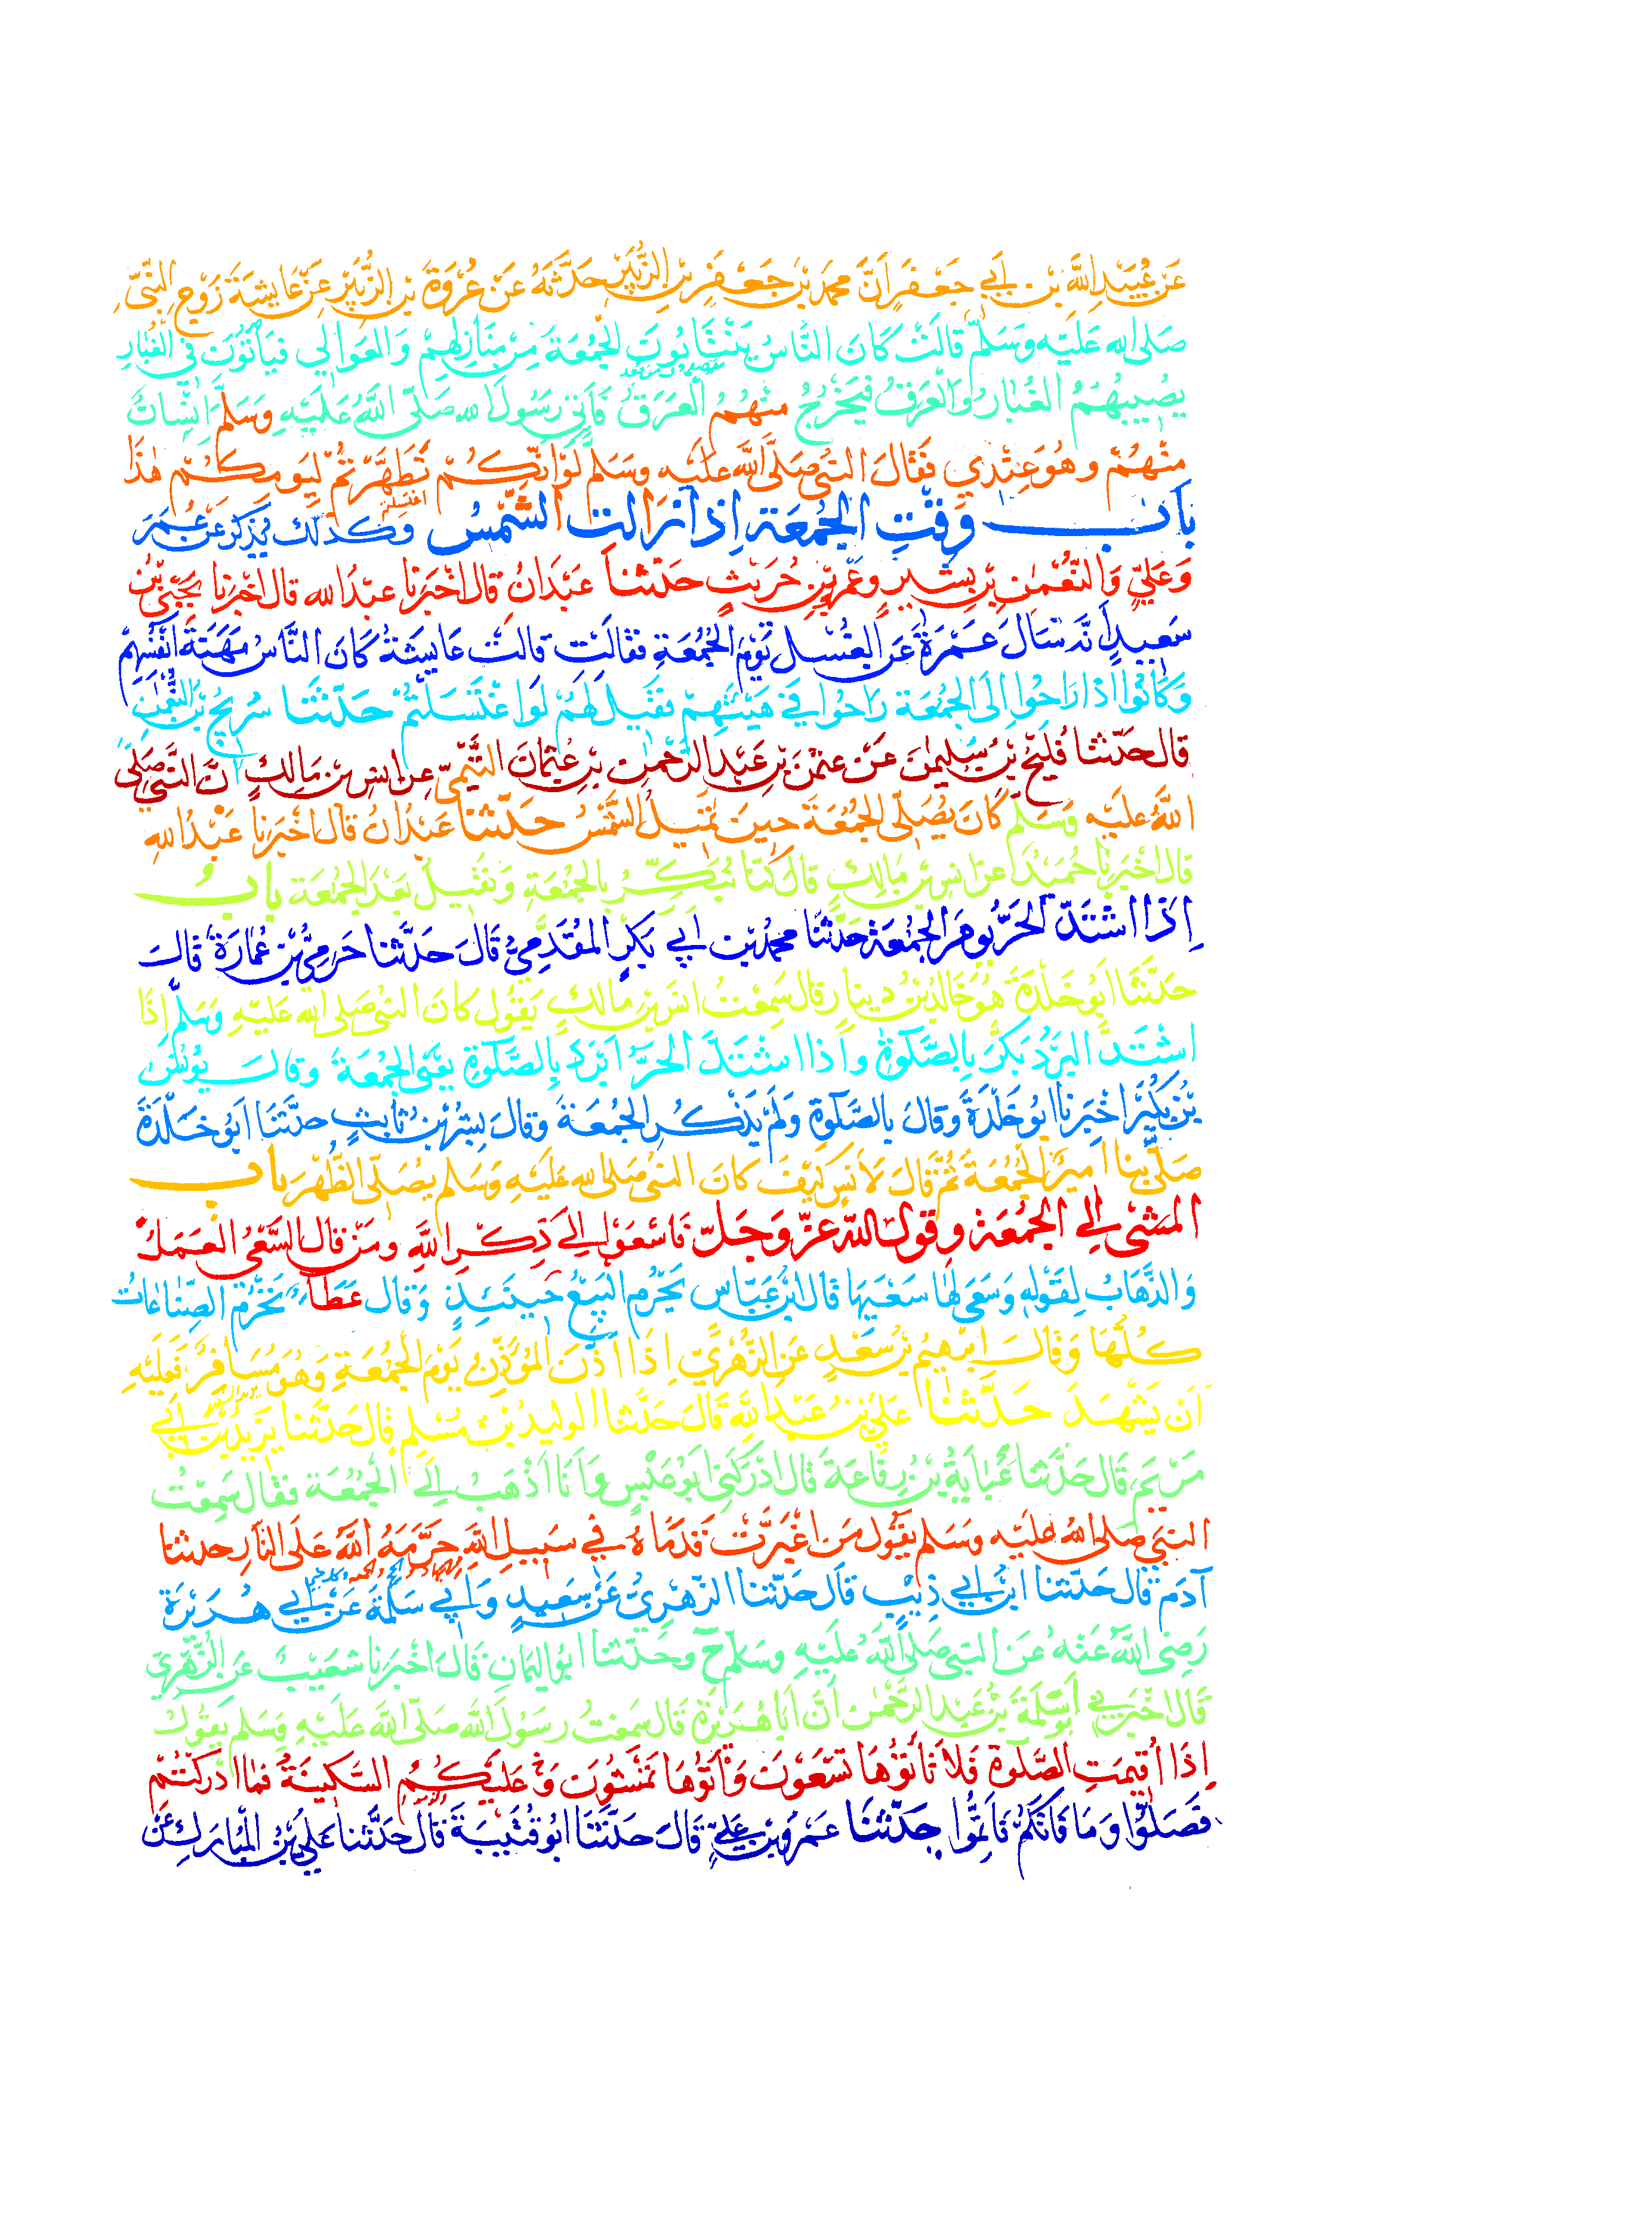 عَنْ عُبَيْدِ اللَّهِ بْنِ أَبِي جَعْفَرٍ أَنَّ مُحَمَّدَ بْنَ جَعْفَرِ بْنِ الزُّبَيْرِ حَدَّثَهُ عَنْ عُرْوَةَ بْنِ الزُّبَيْرِ عَنْ عَايِشَةَ زَوْجِ النَّبِيِّ
صَلَى الله عَلَيْهِ وَسَلَّمَ قَالَتْ كَانَ النَّاسُ يَنْتَابُونَ الْجُمُعَةَ مِنْ مَنَازِلِهِمْ وَالْعَوَالِي فَيَأْتُونَ فِي الْغُبَارِ
يُصِيبُهُمُ الْغُبَارُ وَالْعَرَقُ فَيَخْرُجُ مِنْهُمُ الْعَرَقُ فَأَتَى رَسُولَ الله صَلَّى اللَّهُ عَلَيْهِ وَسَلَّمَ إِنْسَانٌ
مِنْهُمْ وَهُوَ عِنْدِي فَقَالَ النَّبِيُّ صَلَّى اللَّهُ عَلَيْهِ وَسَلَّمَ لَوْ أَنَّكُمْ تَطَهَّرْتُمْ لِيَوْمِكُمْ هَذَا
بَابُ وَقْتِ الْجُمُعَةِ إِذَا زَالَتِ الشَّمْسُ وَكَذَلِكَ يُذْكَرُ عَنْ عُمَرَ
وَعَلِيٍّ وَالنُّعْمٰنِ بْنِ بَشِيرٍ وَعَمْرِو بْنِ حُرَيْثٍ حَدَّثَنَا عَبْدَانُ قَالَ أَخْبَرَنَا عَبْدُ الله قَالَ أَخْبَرَنَا يَحْيَى بْنُ
سَعِيدٍ أَنَّهُ سَأَلَ عَمْرَةَ عَنِ الْغُسْلِ يَوْمَ الْجُمُعَةِ فَقَالَتْ قَالَتْ عَايِشَةُ كَانَ النَّاسُ مَهَنَةَ أَنْفُسِهِمْ
وَكَانُوا إِذَا رَاحُوا إِلَى الْجُمُعَةِ رَاحُوا فِي هَيْئَتِهِمْ فَقِيلَ لَهُمْ لَوِ اغْتَسَلْتُمْ حَدَّثَنَا سُرَيْجُ بْنُ النُّعْمٰنِ
قَالَ حَدَّثَنَا فُلَيْحُ بْنُ سُلَيْمٰنَ عَنْ عُثْمٰنَ بْنِ عَبْدِ الرَّحْمٰنِ بْنِ عُثْمَانَ التَّيْمِيِّ عَنْ أَنَسِ بْنِ مَالِكٍ أَنَّ النَّبِيَّ صَلَّى
اللَّهُ عَلَيْهِ وَسَلَّمَ كَانَ يُصَلِّي الْجُمُعَةَ حِينَ تَمِيلُ الشَّمْسُ حَدَّثَنَا عَبْدَانُ قَالَ أَخْبَرَنَا عَبْدُ اللهِ
قَالَ أَخْبَرَنَا حُمَيْدٌ عَنْ أَنَسِ بْنِ مَالِكٍ قَالَ كُنَّا نُبَكِّرُ بِالْجُمُعَةِ وَنَقِيلُ بَعْدَ الْجُمُعَةِ بَابُ
إِذَا اشْتَدَّ الْحَرُّ يَوْمَ الْجُمُعَةِ حَدَّثَنَا مُحَمَّدُ بْنُ أَبِي بَكْرٍ الْمُقَدَّمِيُّ قَالَ حَدَّثَنَا حَرَمِيُّ بْنُ عُمَارَةَ قَالَ
حَدَّثَنَا أَبُو خَلْدَةَ هُوَ خَالِدُ بْنُ دِينَارٍ قَالَ سَمِعْتُ أَنَسَ بْنَ مَالِكٍ يَقُولُ كَانَ النَّبِيُّ صَلَى الله عَلَيْهِ وَسَلَّمَ إِذَا
اشْتَدَّ الْبَرْدُ بَكَّرَ بِالصَّلَوةِ وَإِذَا اشْتَدَّ الْحَرُّ أَبْرَدَ بِالصَّلَوةِ يَعْنِي الْجُمُعَةَ وَقَالَ يُونُسُ
بْنُ بُكَيْرٍ أَخْبَرَنَا أَبُو خَلْدَةَ وَقَالَ بِالصَّلَوةِ وَلَمْ يَذْكُرِ الْجُمُعَةَ وَقَالَ بِشْرُ بْنُ ثَابِتٍ حَدَّثَنَا أَبُو خَلْدَةَ
صَلَّى بِنَا أَمِيرٌ الْجُمُعَةَ ثُمَّ قَالَ لِأَنَسٍ كَيْفَ كَانَ النَّبِيُّ صَلَى الله عَلَيْهِ وَسَلَّمَ يُصَلِّي الظُّهْرَ بَابُ
الْمَشْيِ إِلَى الْجُمُعَةِ وَقَوْلِ اللَّهِ عَزَّ وَجَلَّ فَاسْعَوْا إِلَى ذِكْرِ اللَّهِ وَمَنْ قَالَ السَّعْيُ الْعَمَلُ
وَالذَّهَابُ لِقَوْلِهِ وَسَعَى لَهَا سَعْيَهَا قَالَ ابْنُ عَبَّاسٍ يَحْرُمُ الْبَيْعُ حِينَئِذٍ وَقَالَ عَطَاءٌ تَحْرُمُ الصِّنَاعَاتُ
كُلُّهَا وَقَالَ إِبْرٰهِيمُ بْنُ سَعْدٍ عَنِ الزُّهْرِيِّ إِذَا أَذَّنَ الْمُؤَذِّنُ يَوْمَ الْجُمُعَةِ وَهُوَ مُسَافِرٌ فَعَلَيْهِ
أَنْ يَشْهَدَ حَدَّثَنَا عَلِيُّ بْنُ عَبْدِ اللَّهِ قَالَ حَدَّثَنَا الْوَلِيدُ بْنُ مُسْلِمٍ قَالَ حَدَّثَنَا يَزِيدُ بْنُ أَبِي
مَرْيَمَ قَالَ حَدَّثَنَا عَبَايَةُ بْنُ رِفَاعَةَ قَالَ أَدْرَكَنِي أَبُو عَبْسٍ وَأَنَا أَذْهَبُ إِلَى الْجُمُعَةِ فَقَالَ سَمِعْتُ
النَّبِيَّ صَلَى اللهُ عَلَيْهِ وَسَلَّمَ يَقُولُ مَنِ اغْبَرَّتْ قَدَمَاهُ فِي سَبِيلِ اللَّهِ حَرَّمَهُ اللَّهُ عَلَى النَّارِ حدثنا
آدَمُ قَالَ حَدَّثَنَا ابْنُ أَبِي ذِيبٍ قَالَ حَدَّثَنَا الزُّهْرِيُّ عَنْ سَعِيدٍ وَأَبِي سَلَمَةَ عَنْ أَبِي هُرَيْرَةَ
رَضِيَ اللَّهُ عَنْهُ عَنِ النَّبِيِّ صَلَّى اللَّهُ عَلَيْهِ وَسَلَّمَ ح وَحَدَّثَنَا أَبُو الْيَمَانِ قَالَ أَخْبَرَنَا شُعَيْبٌ عَنِ الزُّهْرِيِّ
قَالَ أَخْبَرَنِي أَبُو سَلَمَةَ بْنُ عَبْدِ الرَّحْمٰنِ أَنَّ أَبَا هُرَيْرَةَ قَالَ سَمِعْتُ رَسُولَ اللَّهِ صَلَّى اللَّهُ عَلَيْهِ وَسَلَّمَ يَقُولُ
إِذَا أُقِيمَتِ الصَّلَوةُ فَلَا تَأْتُوهَا تَسْعَوْنَ وَأْتُوهَا تَمْشُونَ وَعَلَيْكُمُ السَّكِينَةُ فَمَا أَدْرَكْتُمْ
فَصَلُّوا وَمَا فَاتَكُمْ فَأَتِمُّوا حَدَّثَنَا عَمْرُو بْنُ عَلِيٍّ قَالَ حَدَّثَنَا أَبُو قُتَيْبَةَ قَالَ حَدَّثَنَا عَلِيُّ بْنُ الْمُبَارَكِ عَنْ